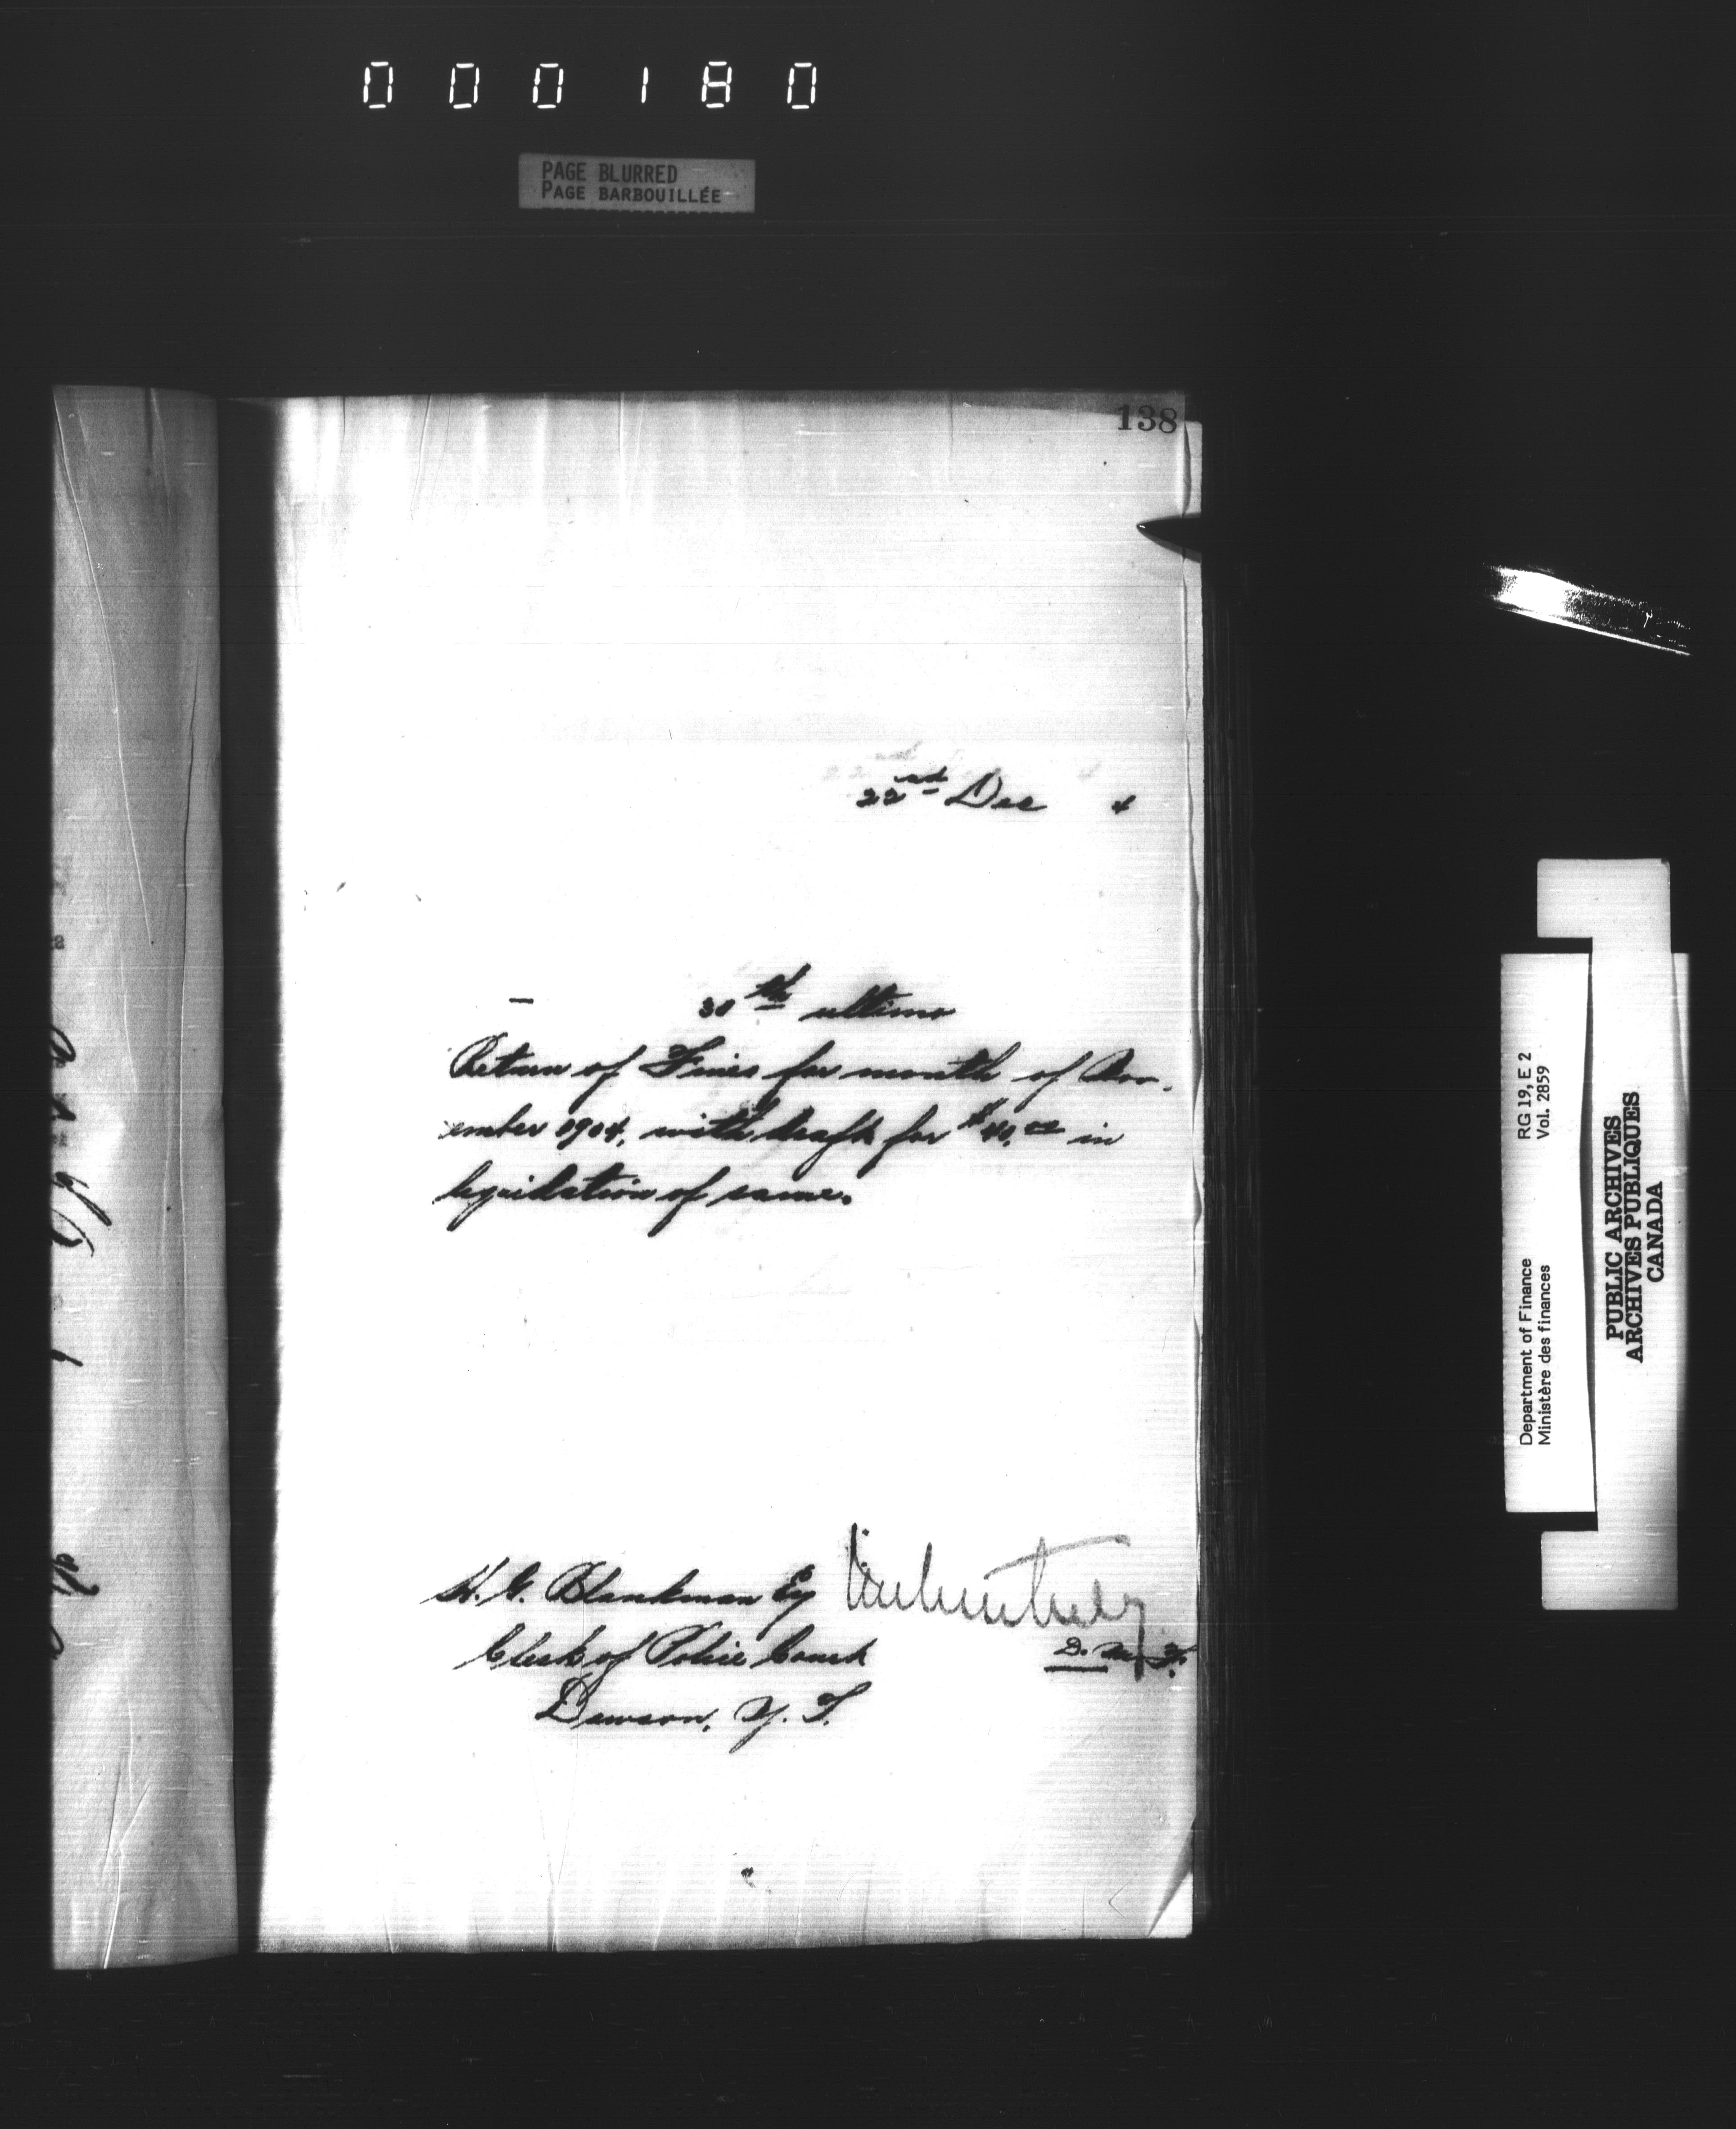 000180
PAGE BLURRED
PAGE BARBOUILLÉE
138
22nd Dec 4
30th ultimo
Return of Fines for month of Nov-
ember 1904, with draft for $40.00 in
liquidation of same.
H. G. Blankman Esq
Clerk of Police Court
Dawson, Y. T.
D. M. F.
RG 19, E 2
Vol. 2859
Department of Finance
Ministère des finances
PUBLIC ARCHIVES
ARCHIVES PUBLIQUES
CANADA